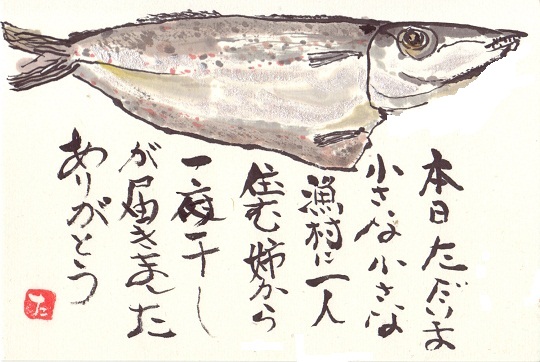 本日ただいま
小さな小さな
漁村に一人
住む姉から
一夜干し
が届きました
ありがとう
た